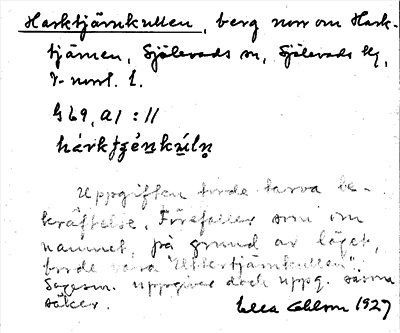 Harktjärnkullen, berg norr om Hark-
tjärnen, Själevads sn, Själevads tg,
V-norrl. l.
G 69, a1 : 11
hárktjénkúln
Uppgiften torde tarva be-
kräftelse. Förefaller som om
namnet, på grund av läget,
torde vara "Uttertjärnkullen".
Sagesm. uppgiver dock uppg. såsom
säker.
Ella Ohlson 1927